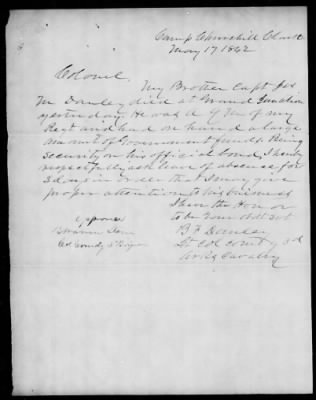 Camp Churchill Clark
May 17 1862
Colonel
My Brother Capt Jas
M Danley died at Grand Junction
yesterday. He was A Q M of my
Regt and had on hand a large
amount of Government funds. Being
security on his official bond, I hereby
respectfully ask leave of absence for
3 days in order that I may give
proper attention to his business
I have the honor
to be Your obt svt
B F Danley
Lt Col comdg 3d
Arks Cavalry
Approved
Col Comdg